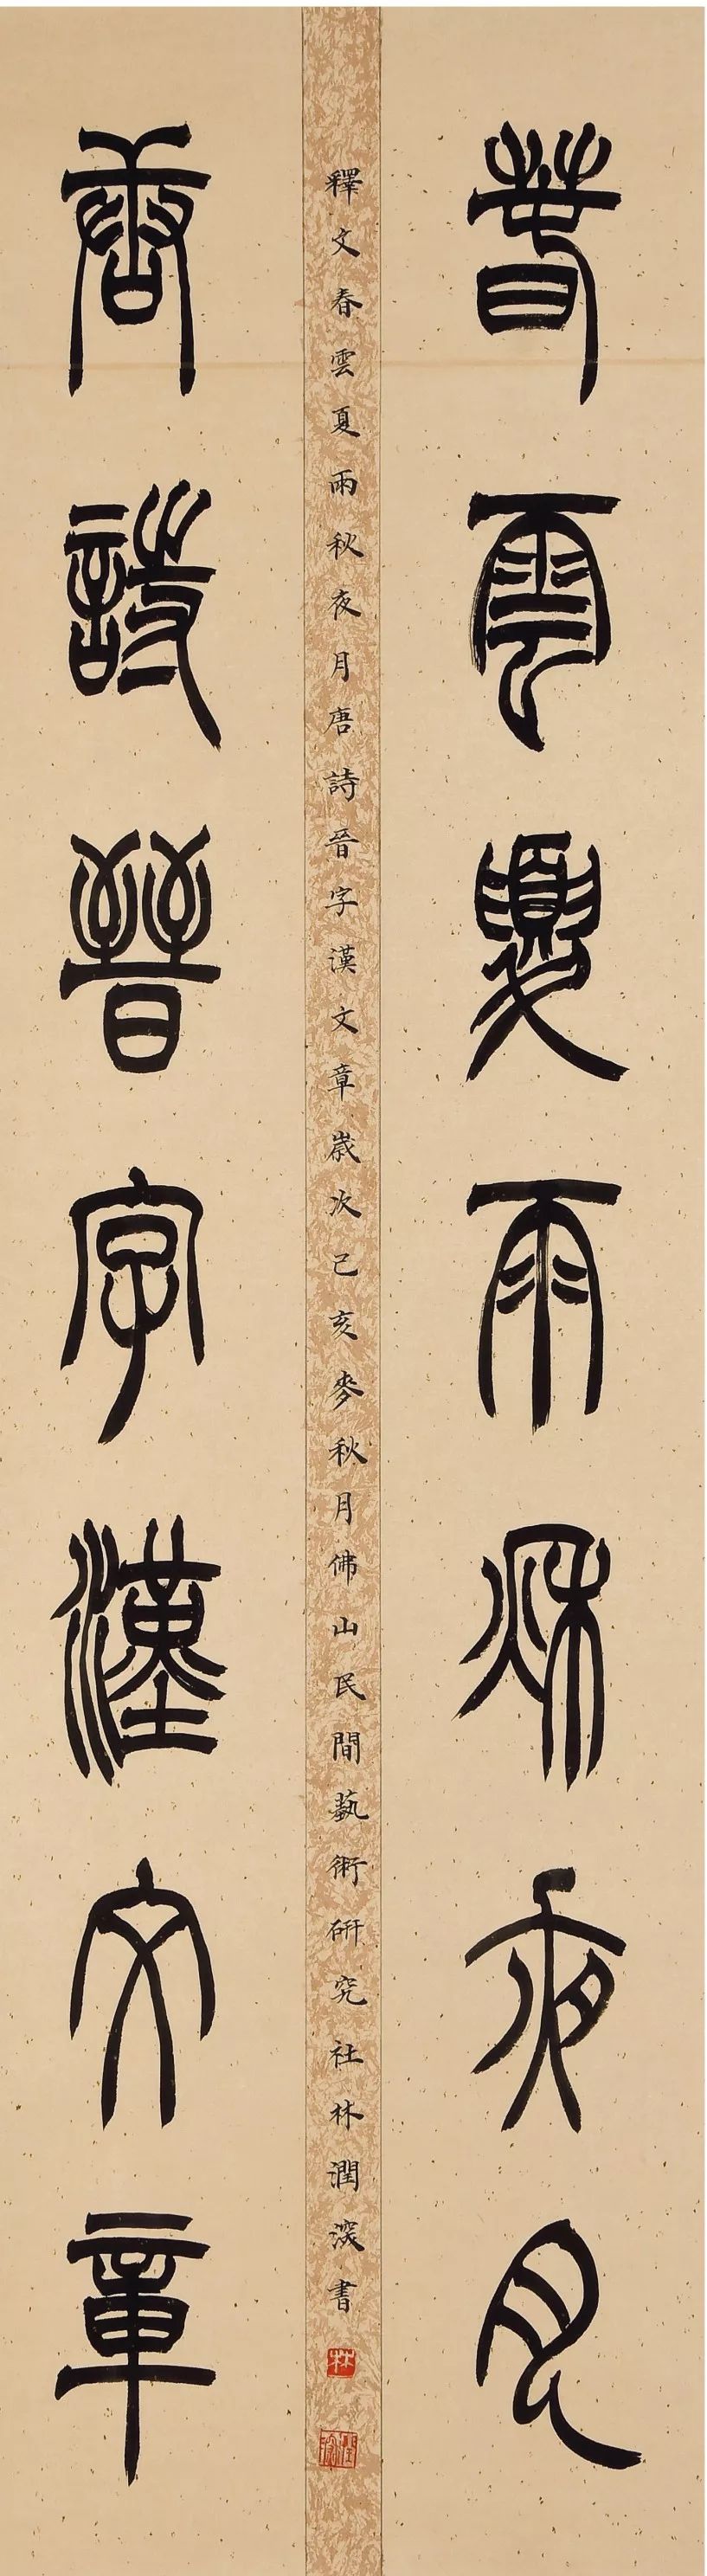 春雲夏雨秋夜月
唐詩晉字漢文章
釋文春雲夏雨秋夜月唐詩晉字漢文章歲次己亥麥秋月佛山民間藝術研究社林潤深書
林